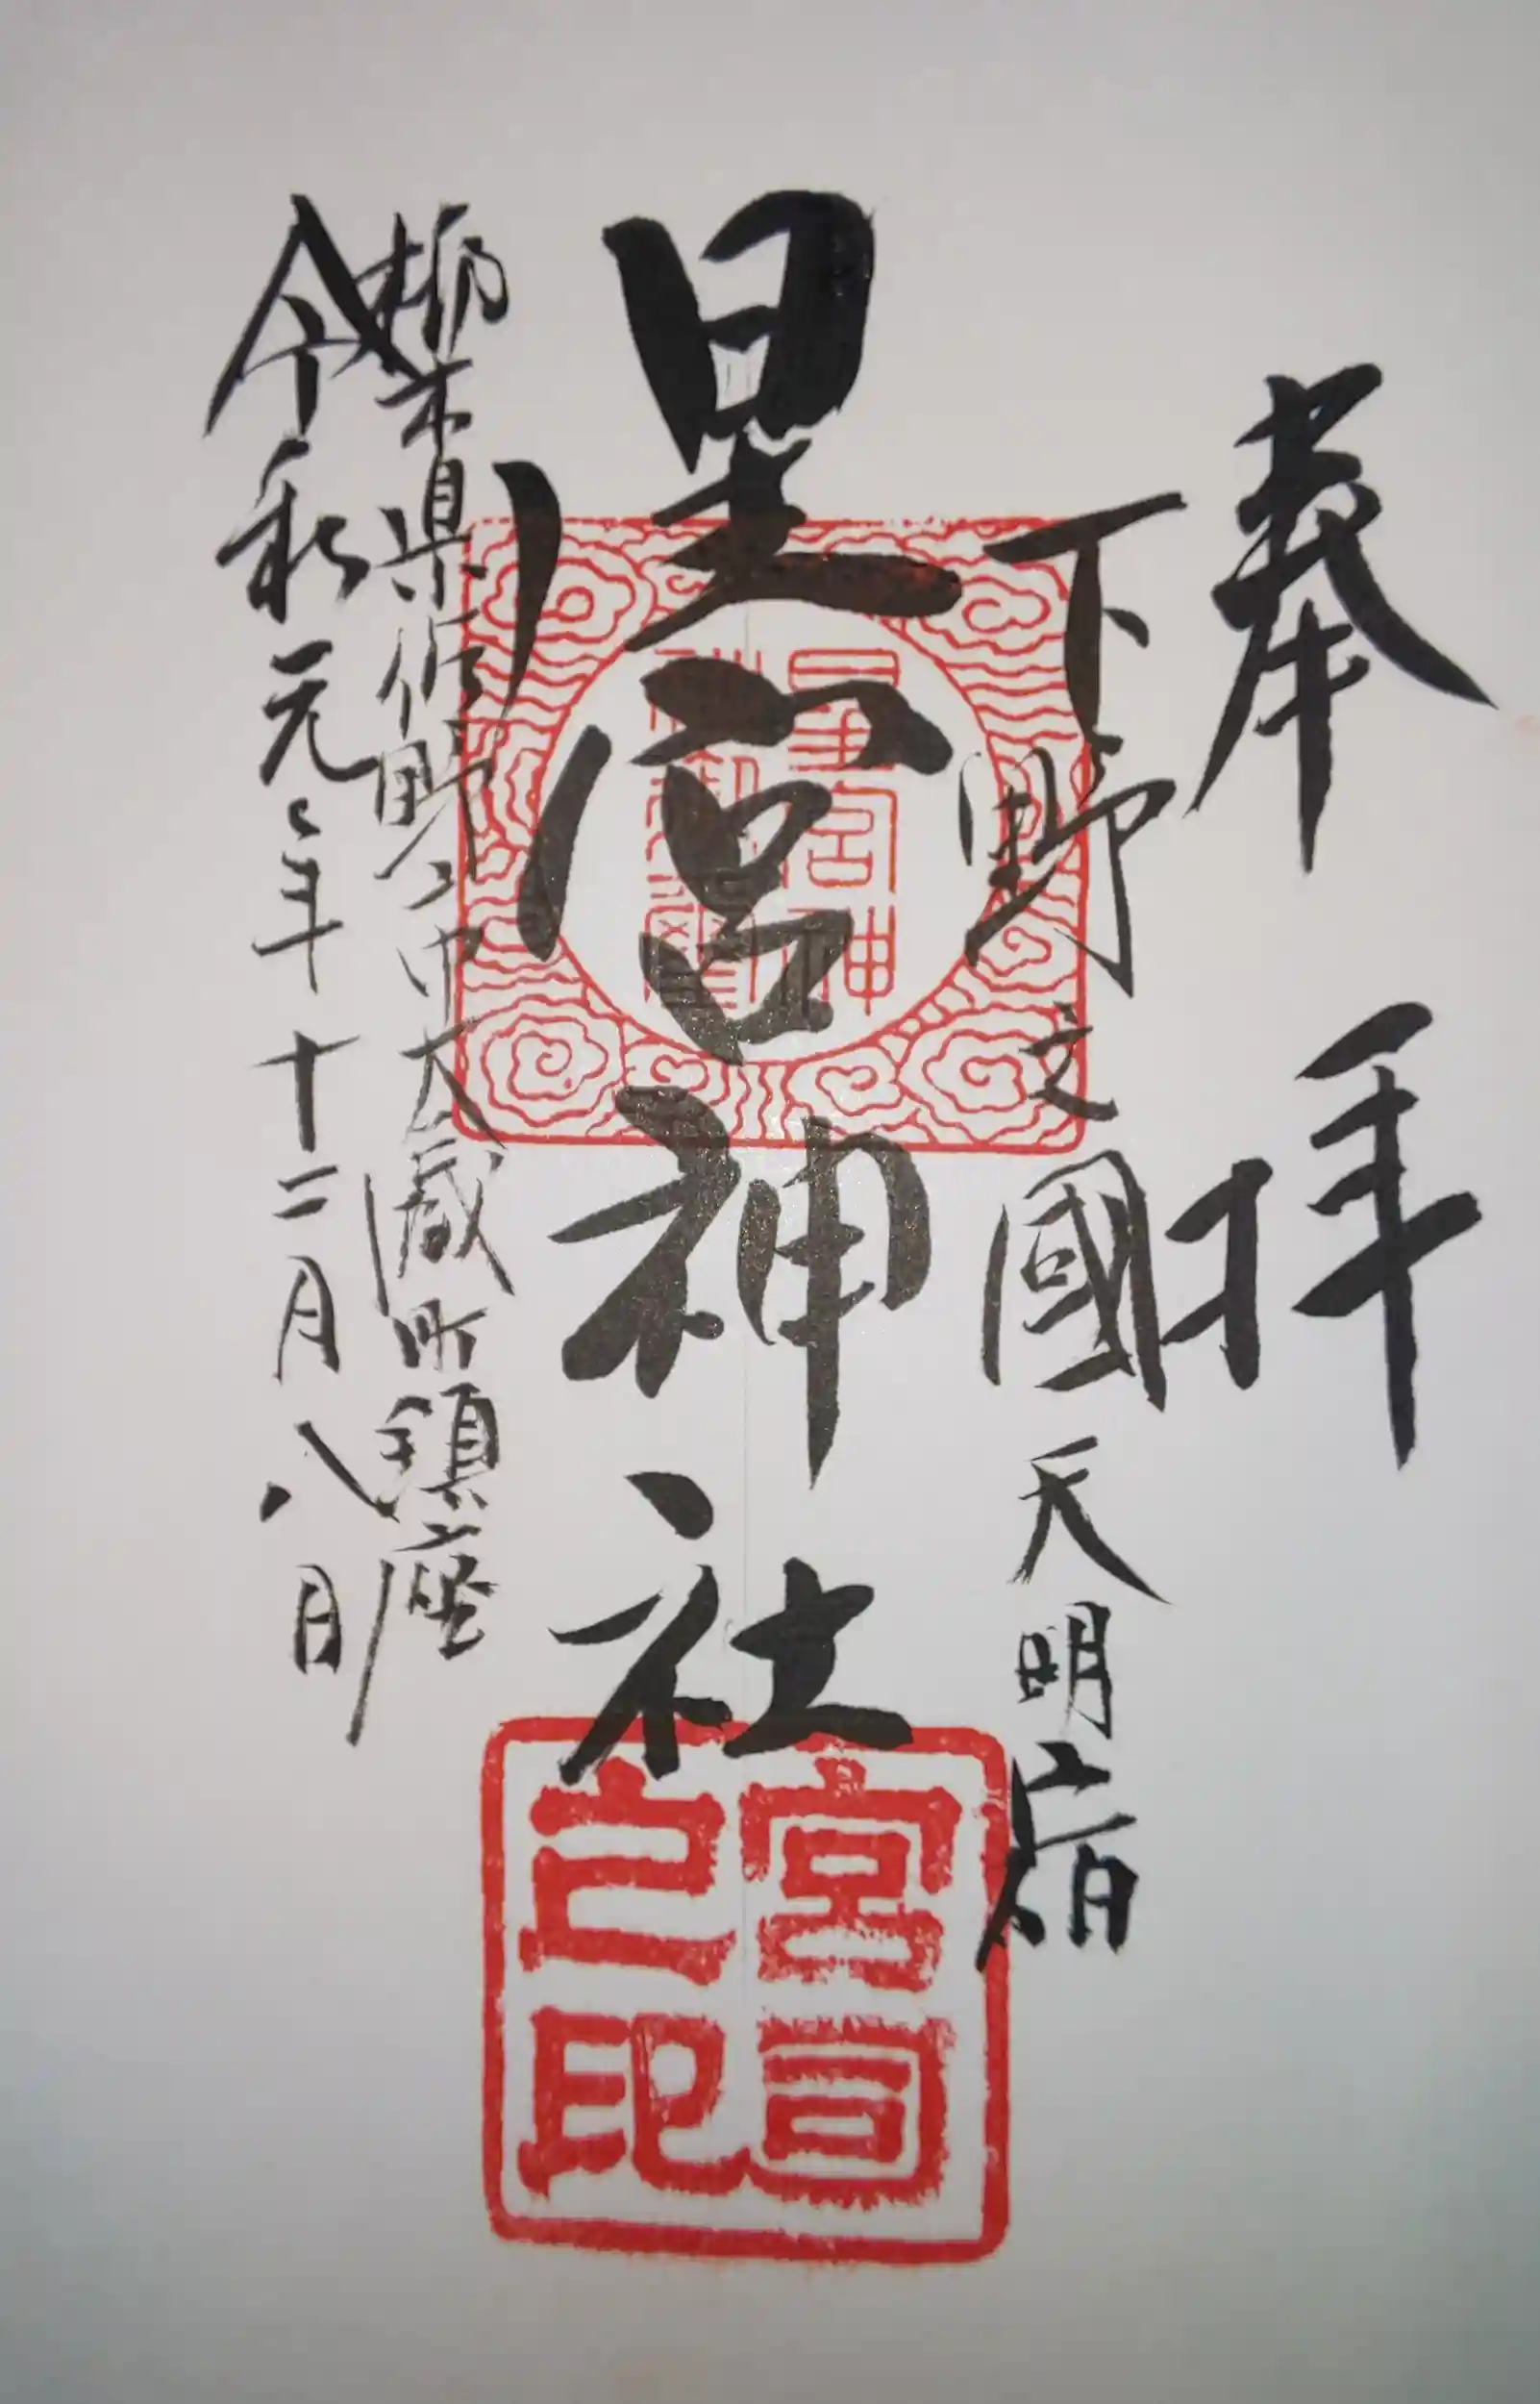 奉拝
下野之國天明宿
星宮神社
栃木県佐野市大蔵町鎮座
令和元年十二月八日
星宮神
社御璽
宮司
之印